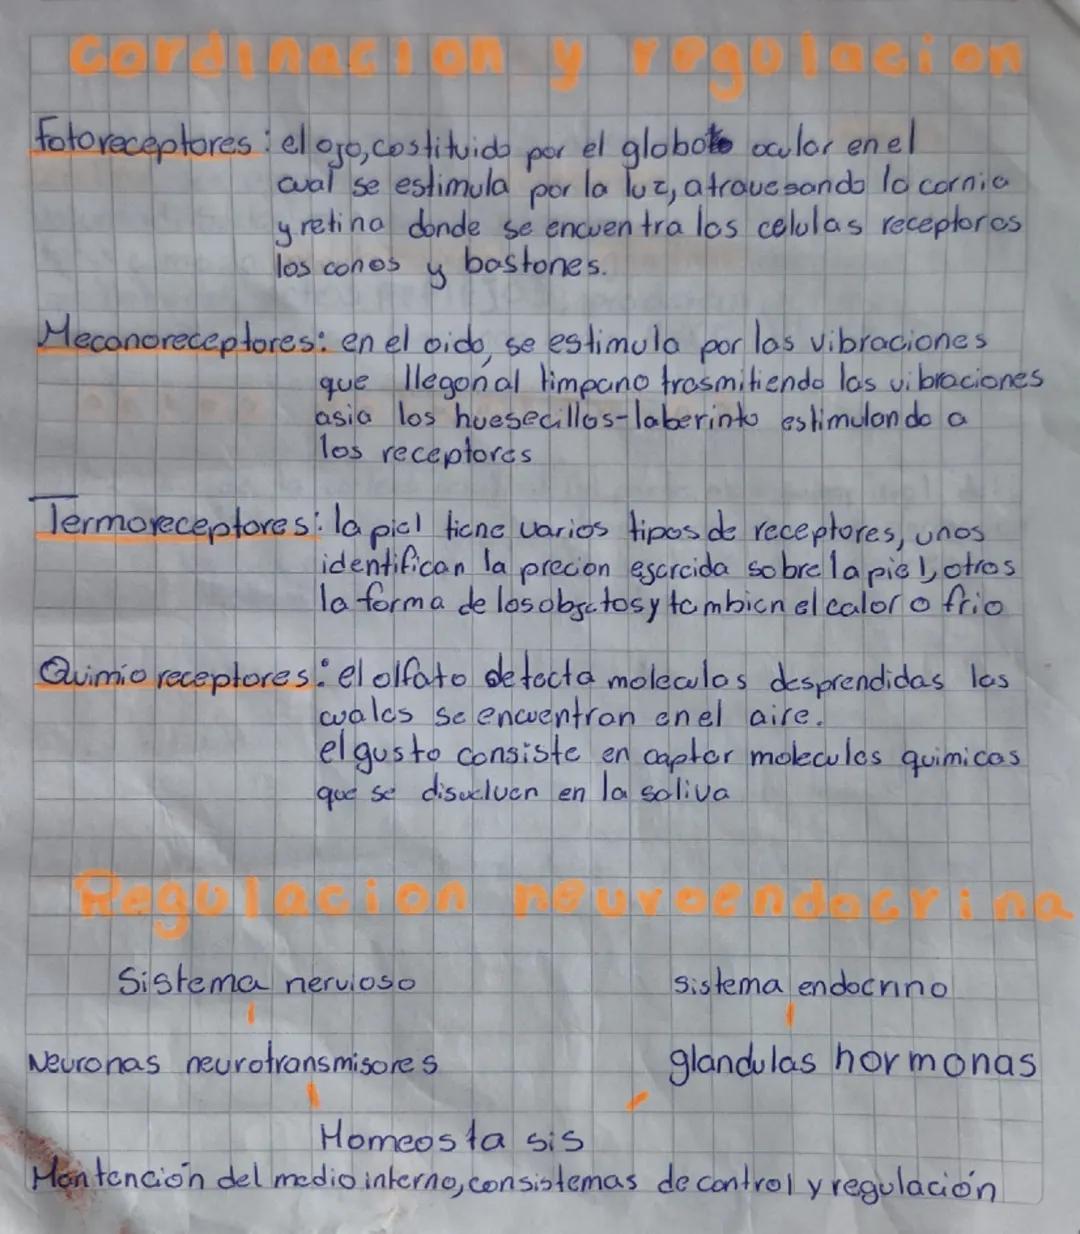 cordinacion y regulacion
Fotoreceptores: el ojo, costituido por el globo ocular en el
cual se estimula por la luz, atravesando la cornia
y retina donde se encuentra las celulas receptoras
los conos y bastones.
Mecanoreceptores: en el oido, se estimula por las vibraciones
que llegan al timpano trasmitiendo las vibraciones
asia los huesecillos-laberinto estimulando a
los receptores
Termoreceptores: la piel tiene varios tipos de receptores, unos
identifican la precion esarcida sobre la piel, otros
la forma de los objetos y tambien el calor o frio
Quimio receptores: el olfato detecta moleculas desprendidas las
cuales se encuentran en el aire.
el gusto consiste en captar moleculas quimicas
que se disuelven en la saliva
Regulacion neuroendocrina
Sistema nervioso sistema endocrino
Neuronas neurotransmisores glandulas hormonas
Homeostasis
Mantención del medio interno, con sistemas de control y regulación